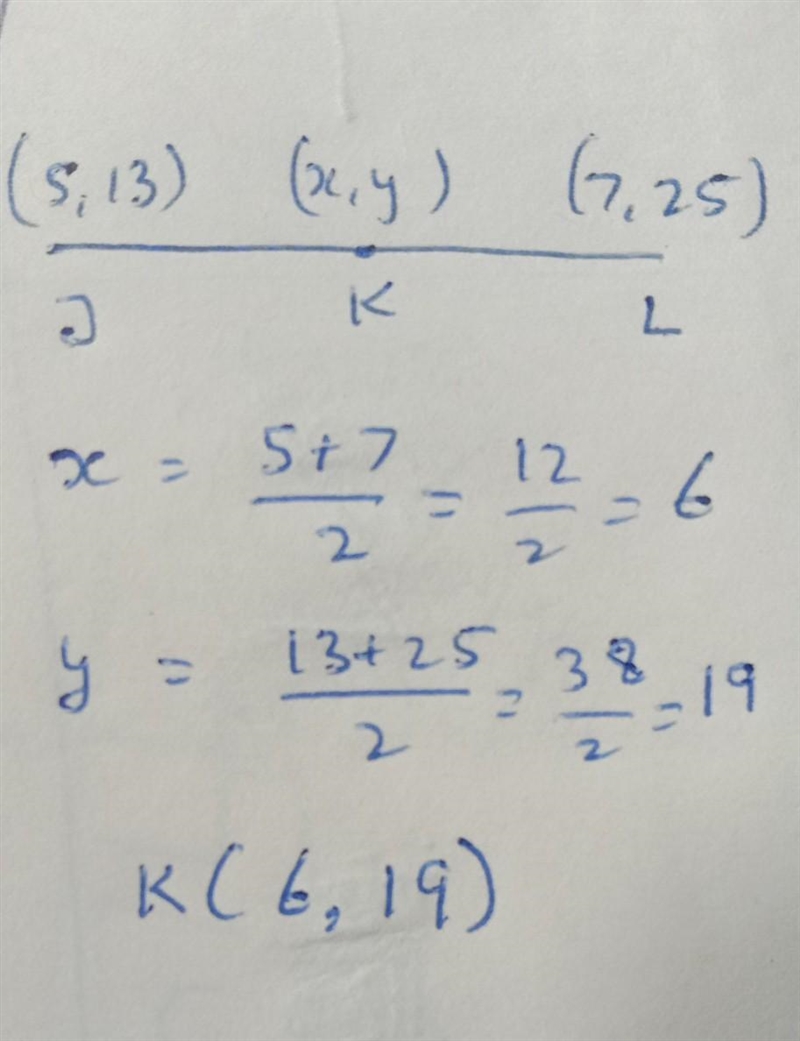 (5,13) (x,y) (7,25)
J K L
x = 5+7/2 = 12/2 = 6
y = 13+25/2 = 38/2 = 19
K(6,19)